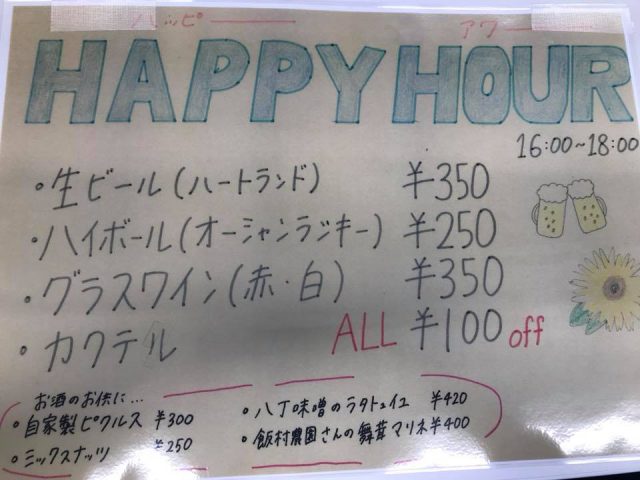 ハッピー アワー
HAPPY HOUR
16:00~18:00
・生ビール(ハートランド) ¥350
・ハイボール(オーシャンラッキー) ¥250
・グラスワイン(赤・白) ¥350
・カクテル ALL ¥100 off
お酒のお供に…
・自家製ピクルス ¥300
・ミックスナッツ ¥250
・八丁味噌のラタトゥイユ ¥420
・飯村農園さんの舞茸マリネ ¥400